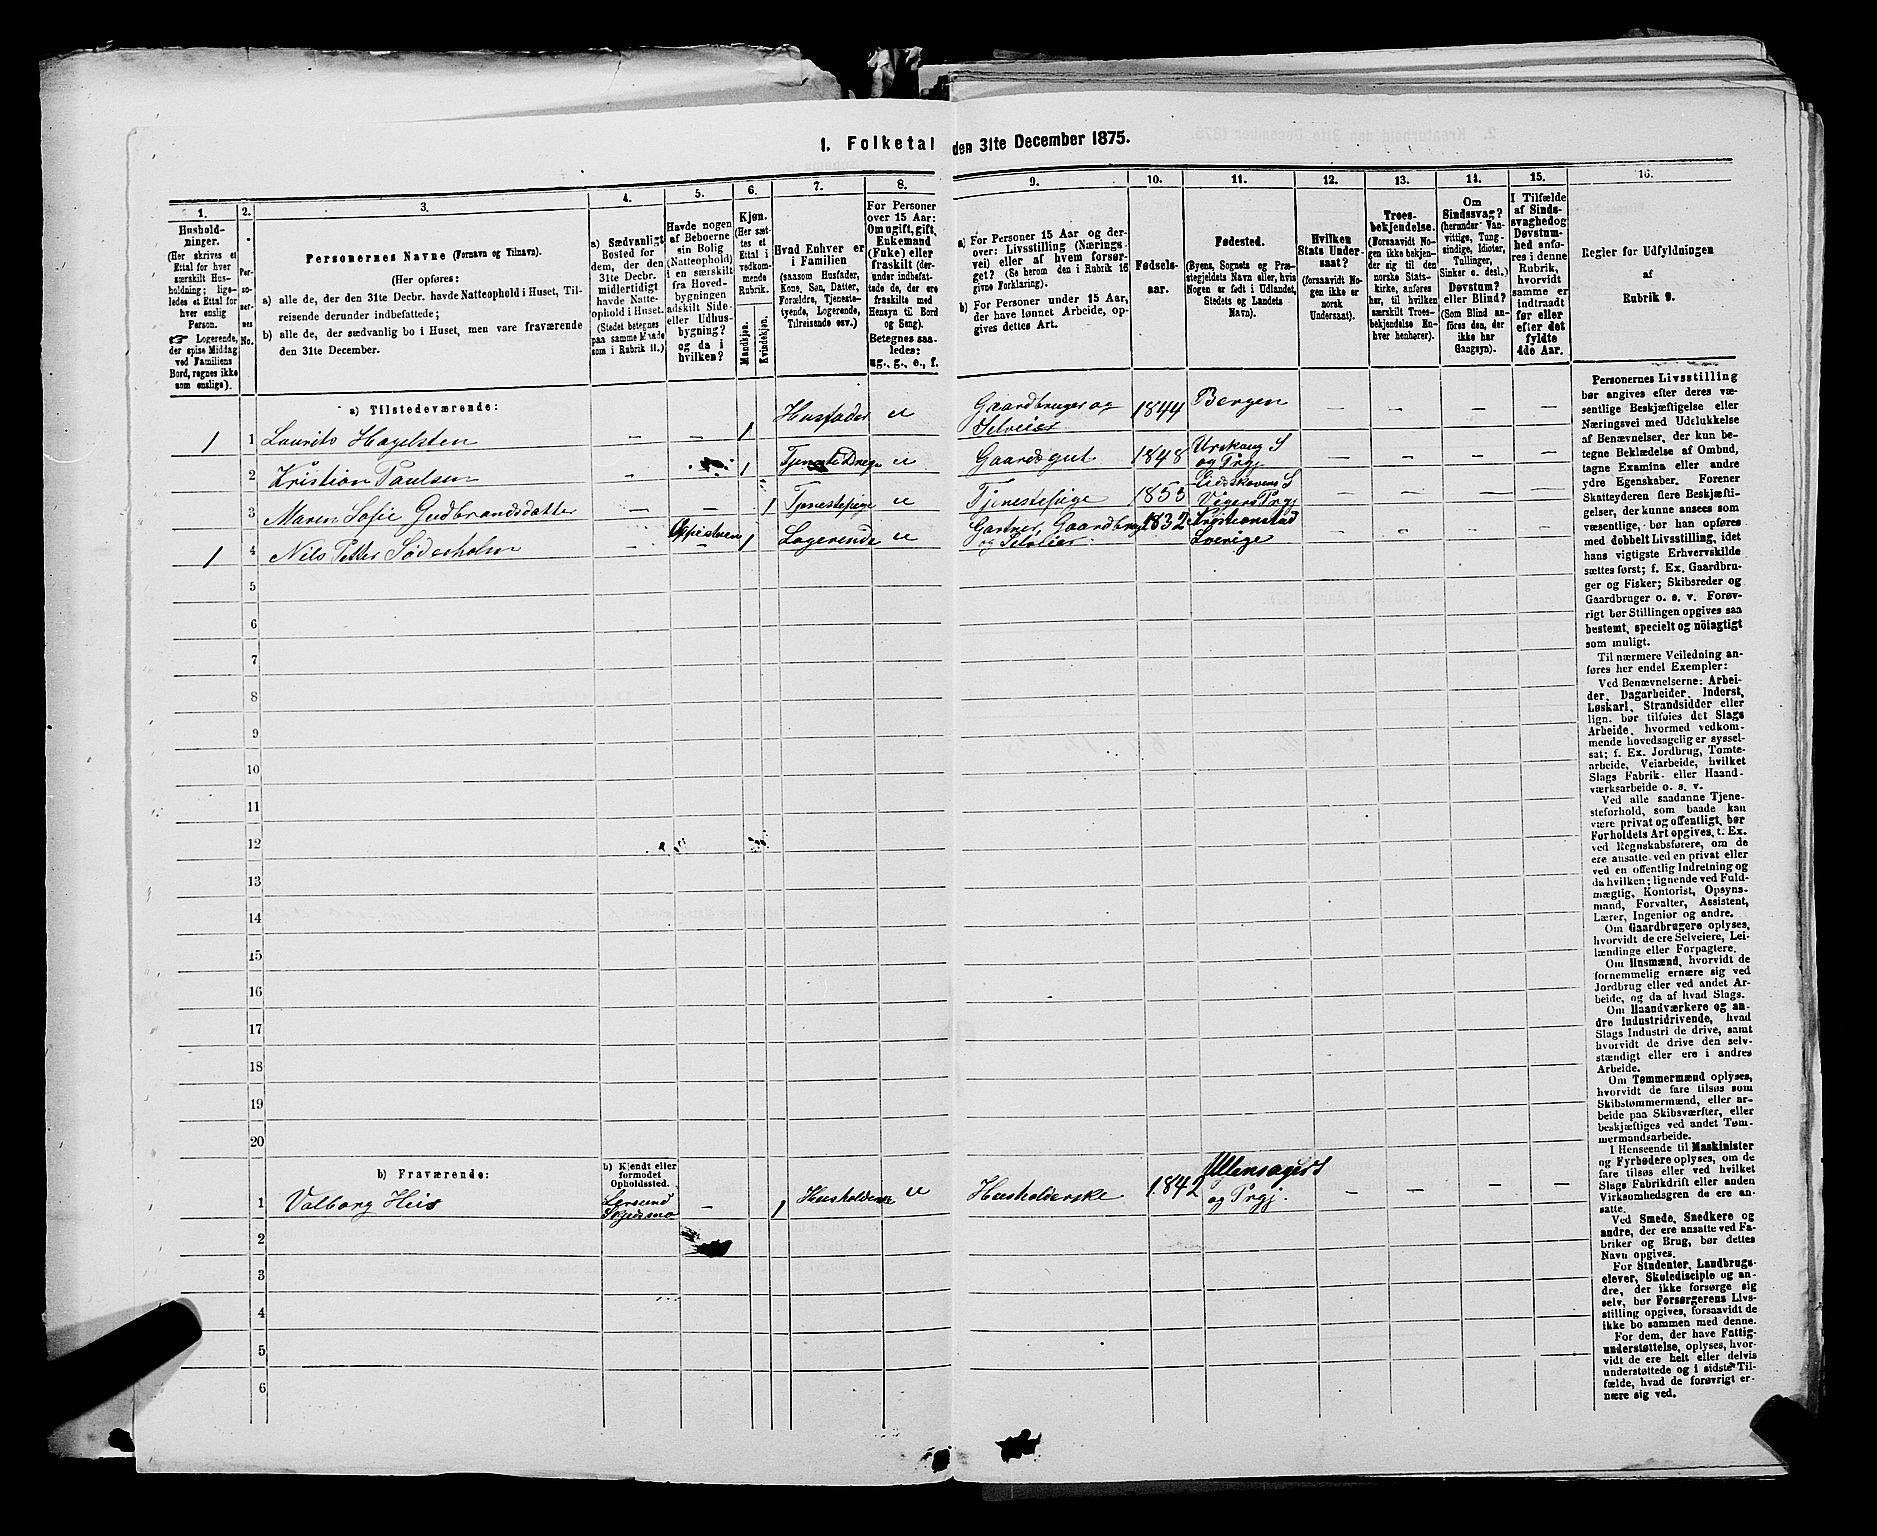 1. Folketal den 31te December 1875.
1.
2.
3.
4.
5.
6.
7.
8.
9.
10.
11.
12.
13.
14.
15.
16.
Hushold-
ninger.
(Her skrives et
Ettal for hver
særskilt Hus-
holdning; lige-
ledes et Ettal for
hver enslig
Person.
☞ Logerende,
der spise Middag
ved Familiens
Bord, regnes ikke
som enslige).
Per-
so-
ner-
nes
No.
Personernes Navne (Fornavn og Tilnavn).
(Her opføres:
a) alle de, der den 31te Decbr. havde Natteophold i Huset, Til-
reisende derunder indbefattede;
b) alle de, der sædvanlig bo i Huset, men vare fraværende
den 31te December.
a) Sædvanligt
Bosted for
dem, der den
31te Decbr.
midlertidigt
havde Natte-
ophold i Huset.
(Stedet betegnes
paa samme Maade
som i Rubrik 11.)
Havde nogen
af Beboerne
sin Bolig
(Natteophold)
i en særskilt
fra Hoved-
bygningen
adskilt Side
eller Udhus-
bygning?
og da i
hvilken?
Kjøn.
(Her sæt-
tes et
Ettal i
vedkom-
mende
Rubrik.
Mandkjøn.
Kvindekjøn.
Hvad Enhver er
i Familien
(saasom Husfader,
Kone, Søn, Datter,
Forældre, Tjeneste-
tyende, Logerende,
Tilreisende osv.)
For Personer
over 15 Aar:
Om ugift, gift,
Enkemand
(Enke) eller
fraskilt (der-
under indbefat-
tede de, der ere
fraskilte med
Hensyn til Bord
og Seng).
Betegnes saa-
ledes:
ug., g., e., f.
a) For Personer 15 Aar og der-
over: Livsstilling (Nærings-
vei) eller af hvem forsør-
get? (Se herom den i Rubrik 16
givne Forklaring).
b) For Personer under 15 Aar,
der have lønnet Arbeide, op-
gives dettes Art.
Fødsels-
aar.
Fødested.
(Byens, Sognets og Præ-
stegjeldets Navn eller, hvis
Nogen er født i Udlandet,
Stedets og Landets
Navn).
Hvilken
Stats Under-
saat?
(forsaavidt No-
gen ikke er
norsk
Undersaat).
Troes-
bekjendelse.
(Forsaavidt No-
gen ikke bekjen-
der sig til den
norske Stats-
kirke, anføres
her, til hvilken
særskilt Troes-
bekjendelse En-
hver henhører).
Om
Sindssvag?
(herunder Van-
vittige, Tung-
sindige, Idioter,
Tullinger,
Sinker o. desl.)
Døvstum?
eller Blind?
(Som Blind an-
føres den, der
ikke har
Gangsyn).
I Tilfælde
af Sinds-
svaghed og
Døvstum-
hed anfø-
res i denne
Rubrik,
hvorvidt
samme er
indtraadt
før eller
efter det
fyldte
4de Aar.
Regler for Udfyldningen
af
Rubrik 9.
a) Tilstedeværende:
1 1 Laurits Hagelsten — — 1 Husfader u Gaardbruger og Selveier 1844 Bergen — — — —
2 Kristian Paulsen — 1 Tjenestedreng u Gaardsgut 1848 Urskoug S og Prgj. — — — —
3 Maren Sofie Gudbrandsdatter — — 1 Tjenestepige u Tjenestepige 1853 Eidskovens S Vigers Prgj — — — —
1 4 Nils Petter Søderholm — 1 Logerende u Gartner, Gaardbruger og Selveier 1832 Kristianstad Sverige — — — —
5
6
7
8
9
10
11
12
13
14
15
16
17
18
19
20
b) Fraværende:
b) Kjendt eller
formodet
Opholdssted.
1 Valborg Heis — 1 Husholderske u Husholderske 1842 Ullensagers og Prgj. — — — —
2
3
4
5
6
Personernes Livsstilling
bør angives efter deres væ-
sentlige Beskjæftigelse eller
Næringsvei med Udelukkelse
af Benævnelser, der kun be-
tegne Beklædelse af Ombud,
tagne Examina eller andre
ydre Egenskaber. Forener
Skatteyderen flere Beskjæfti-
gelser, der kunne ansees som
væsentlige, bør han opføres
med dobbelt Livsstilling, idet
hans vigtigste Erhvervskilde
sættes først; f. Ex. Gaardbru-
ger og Fisker; Skibsreder og
Gaardbruger o. s. v. Forøv-
rigt bør Stillingen opgives saa
bestemt, specielt og nöiagtigt
som muligt.
Til nærmere Veiledning an-
føres her endel Exempler:
Ved Benævnelserne: Arbei-
der, Dagarbeider, Inderst,
Løskarl, Strandsidder eller
lign. bør tilføies det Slags
Arbeide, hvormed vedkom-
mende hovedsagelig er syssel-
sat; f. Ex. Jordbrug, Tomte-
arbeide, Veiarbeide, hvilket
Slags Fabrik- eller Haand-
værksarbeide o. s. v.
Ved alle saadanne Tjene-
steforhold, som baade kan
være privat og offentligt, bør
Forholdets Art opgives, t. Ex.
ved Regnskabsførere, om de
ere ansatte ved en privat eller
ved en offentlig Indretning og
da hvilken; lignende ved Fuld-
mægtig, Kontorist, Opsyns-
mand, Forvalter, Assistent,
Lærer, Ingeniør og andre.
Om Gaardbrugere oplyses,
hvorvidt de ere Selveiere, Lei-
lændinge eller Forpagtere.
Om Husmænd, hvorvidt de
fornemmelig ernære sig ved
Jordbrug eller ved andet Ar-
beide, og da af hvad Slags.
Om Haandværkere og an-
dre Industridrivende, hvad
Slags Industri de drive, samt
hvorvidt de drive den selv-
stændigt eller ere i andres
Arbeide.
Om Tømmermænd oplyses,
hvorvidt de fare tilsøs som
Skibstømmermænd, eller ar-
beide paa Skibsværfter, eller
beskjæftiges ved andet Tøm-
mermandsarbeide.
I Henseende til Maskinister
og Fyrbødere oplyses, om de
fare tilsøs eller ved hvilket
Slags Fabrikdrift eller anden
Virksomhedsgren de ere an-
satte.
Ved Smede, Snedkere og
andre, der ere ansatte ved Fa-
briker og Brug, bør dettes
Navn opgives.
For Studenter, Landbrugs-
elever, Skoledisciple og an-
dre, der ikke forsørge sig
selv, bør Forsørgerens Livs-
stilling opgives, forsaavidt de
ikke bo sammen med denne.
For dem, der have Fattig-
understøttelse, oplyses, hvor-
vidt de ere helt eller delvis
understøttede og i sidste Til-
fælde, hvad de forøvrigt er-
nære sig ved.